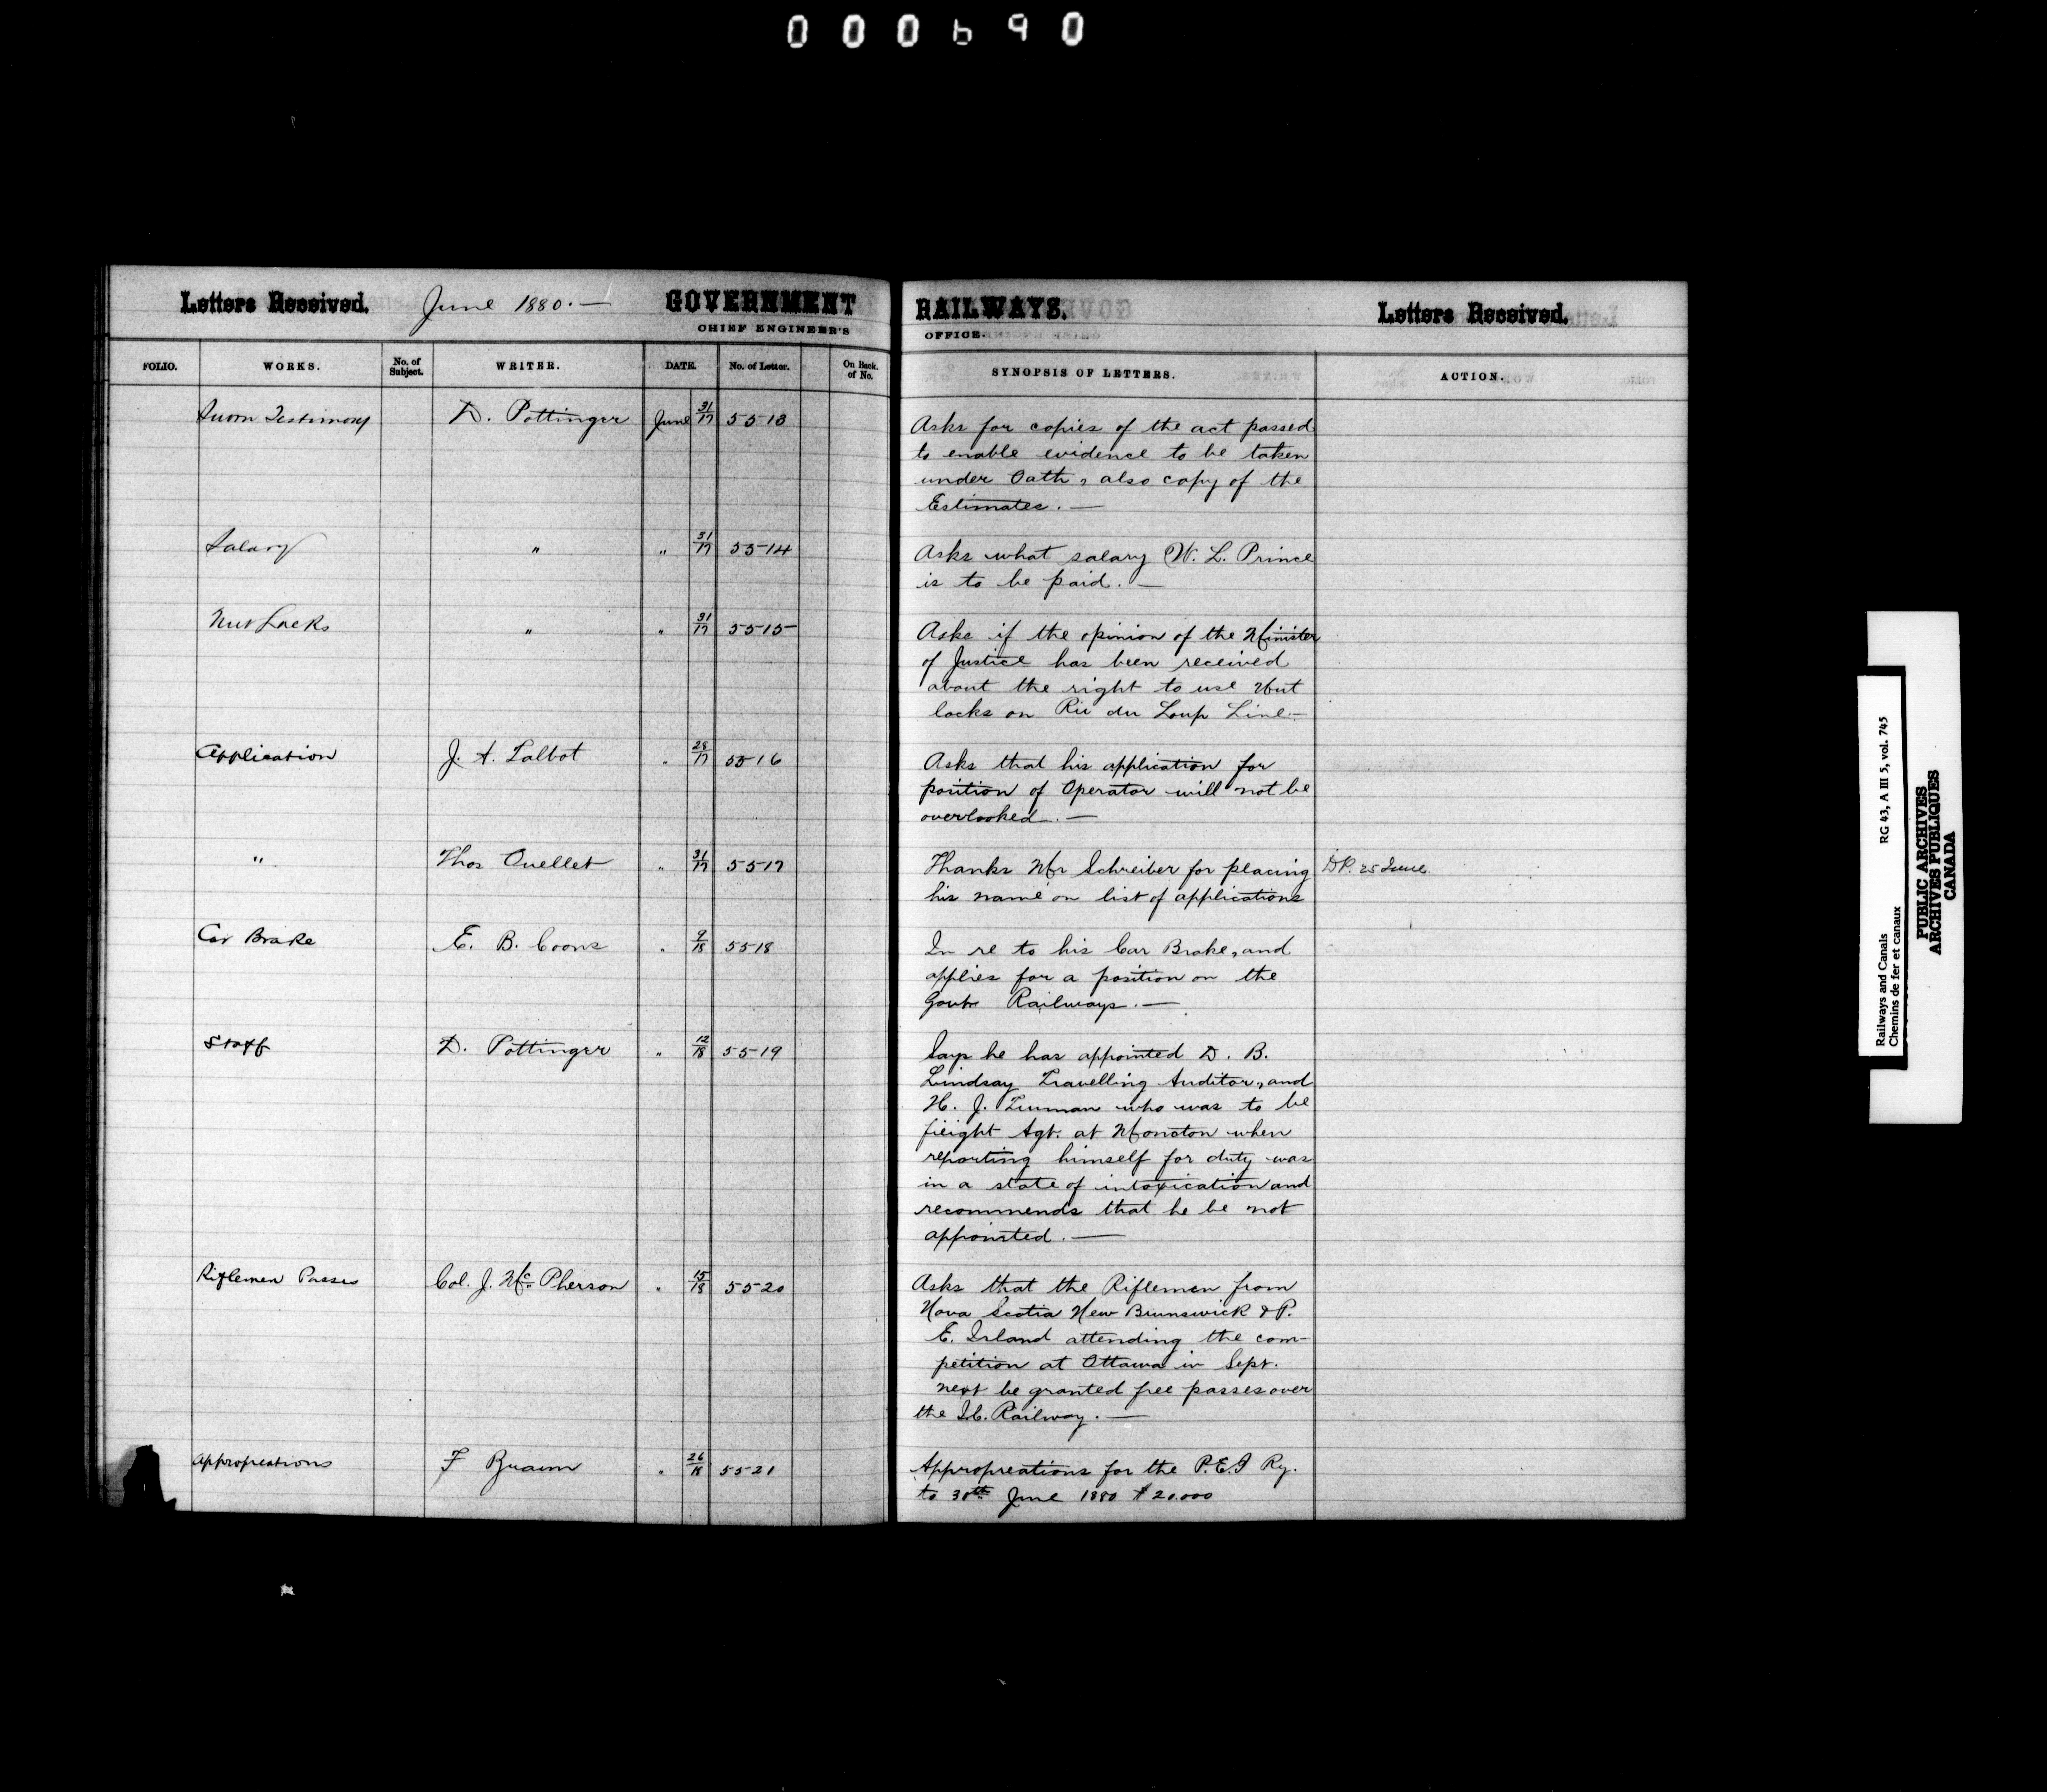 000690
Letters Received. June 1880. — GOVERNMENT RAILWAYS. Letters Received.
CHIEF ENGINEER'S OFFICE.
FOLIO. WORKS. No. of Subject. WRITER. DATE. No. of Letter. On Back of No. SYNOPSIS OF LETTERS. ACTION.
Sworn Testimony D. Pottinger June 31/17 5513 Asks for copies of the act passed
to enable evidence to be taken
under Oath, also copy of the
Estimates. —
Salary " " 31/17 5514 Asks what salary W. L. Prince
is to be paid. —
Nut Locks " " 31/17 5515 Asks if the opinion of the Minister
of Justice has been received
about the right to use Nut
locks on Riv du Loup Line. —
Application J. A. Talbot " 28/17 5516 Asks that his application for
position of Operator will not be
overlooked. —
" Thos Ouellet " 31/17 5517 Thanks Mr Schreiber for placing D.P. 25 June.
his name on list of applications
Car Brake E. B. Coons " 9/18 5518 In re to his Car Brake, and
applies for a position on the
Govt Railways. —
Staff D. Pottinger " 12/18 5519 Says he has appointed D. B.
Lindsay Travelling Auditor, and
H. J. Truman who was to be
freight Agt. at Moncton when
reporting himself for duty was
in a state of intoxication and
recommends that he be not
appointed. —
Riflemen Passes Col. J. McPherson " 15/18 5520 Asks that the Riflemen from
Nova Scotia New Brunswick & P.
E. Island attending the com-
petition at Ottawa in Sept.
next be granted free passes over
the I.C. Railway. —
Appropreations F Braun " 26/18 5521 Appropreations for the P.E.I Ry.
to 30th June 1880 $20.000
Railways and Canals RG 43, A III 5, vol. 745
Chemins de fer et canaux
PUBLIC ARCHIVES
ARCHIVES PUBLIQUES
CANADA